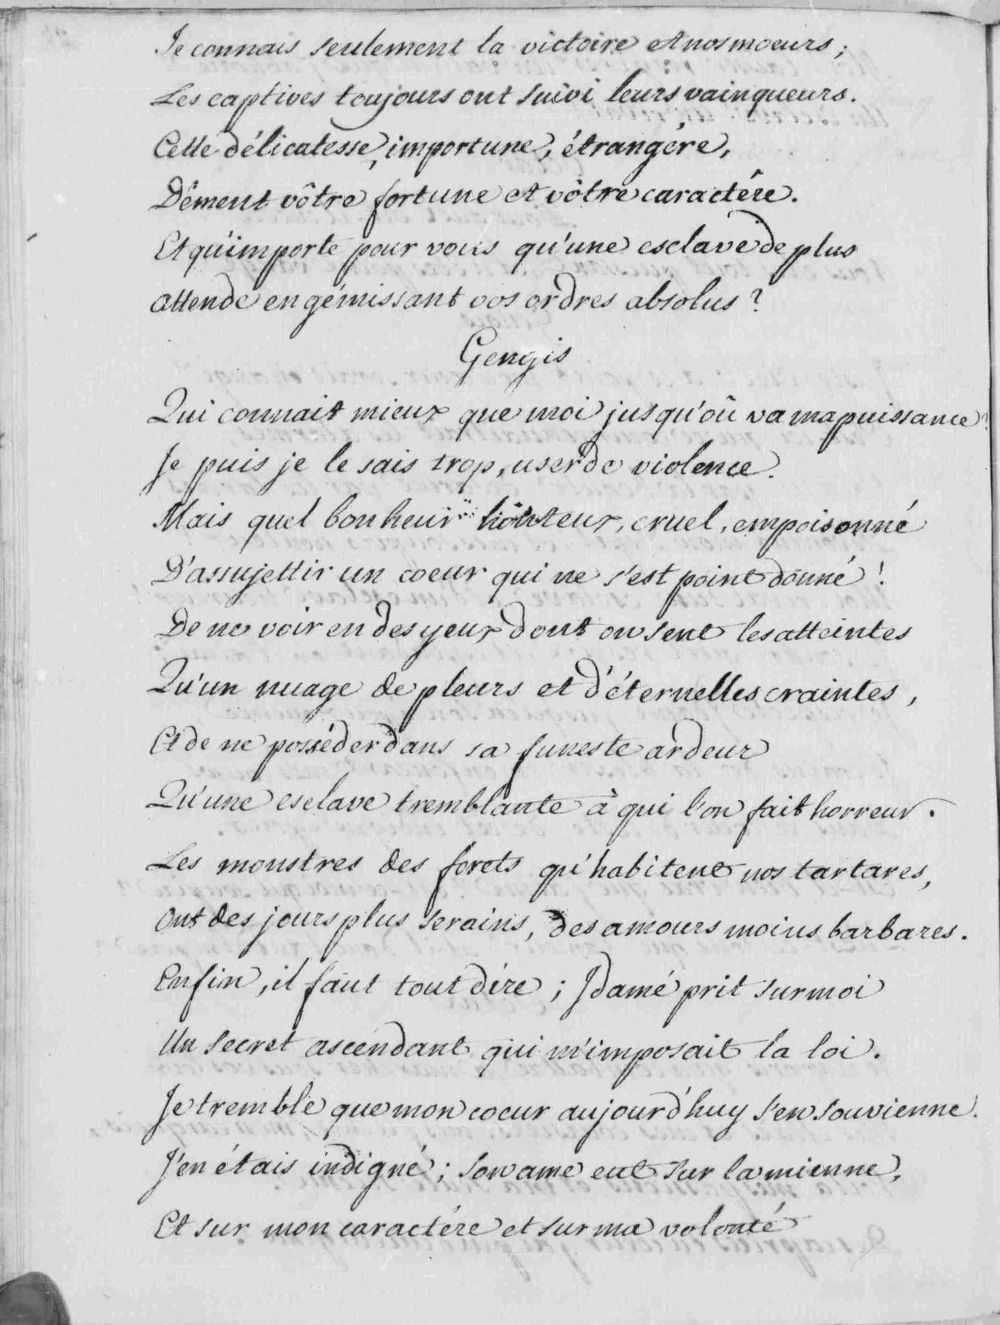 Je connais seulement la victoire et nos moeurs;
Les captives toujours ont suivi leurs vainqueurs.
Cette délicatesse, importune, étrangére,
Dément vôtre fortune et vôtre caractére.
Et qu'importe pour vous qu'une esclave de plus
Attende en gémissant vos ordres absolus?
Gengis
Qui connait mieux que moi jusqu'où va ma puissance?
Je puis je le sais trop, user de violence.
Mais quel bonheur honteux, cruel, empoisonné
D'assujettir un coeur qui ne s'est point donné!
De ne voir en des yeux dont on sent les atteintes
Qu'un nuage de pleurs et d'éternelles craintes,
Et de ne posséder dans sa funeste ardeur
Qu'une esclave tremblante à qui l'on fait horreur.
Les monstres des forets qu'habitent nos tartares,
Ont des jours plus serains, des amours moins barbares.
Enfin, il faut tout dire; Idamé prit sur moi
Un secret ascendant qui m'imposait la loi.
Je tremble que mon coeur aujourd'huy s'en souvienne.
J'en étais indigné; son ame eut sur la mienne,
Et sur mon caractére et sur ma volonté